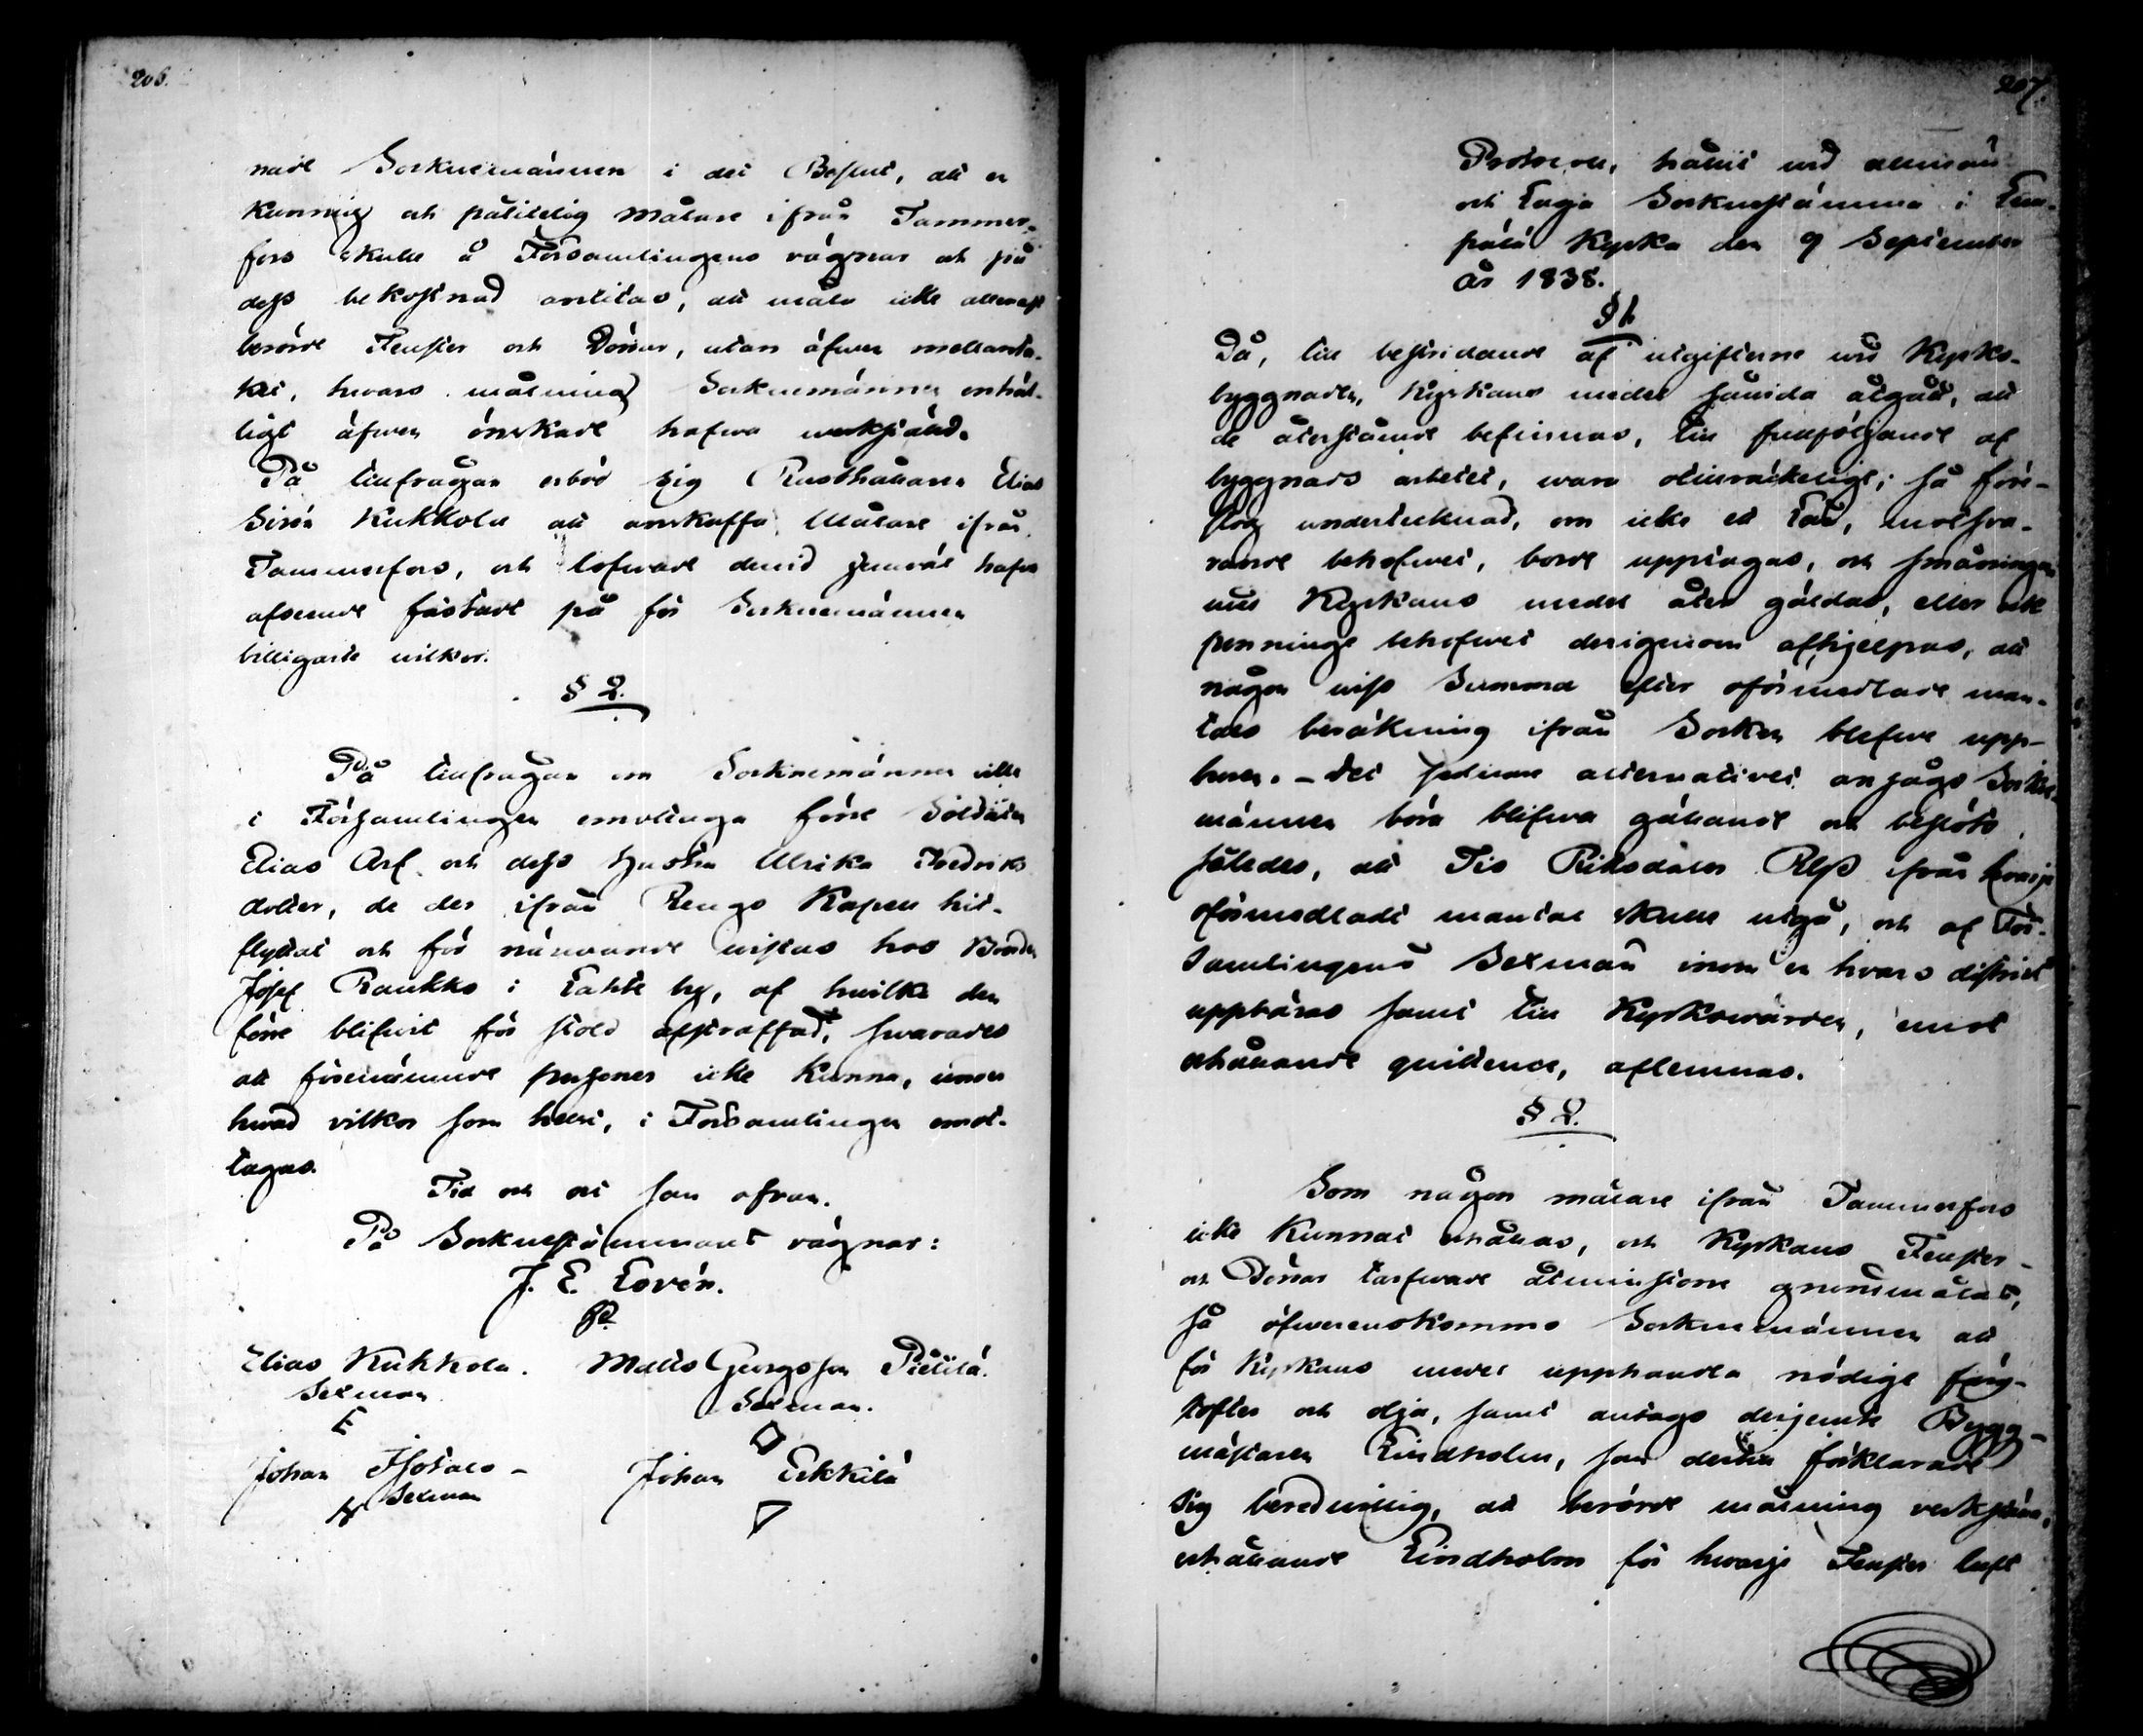 206.
nade Socknemännen i det Beslut, att en
kunnig och pålitelig Målare ifrån Tammer-
fors skulle å Församlingens vägnar och på
dess bekostnad antitas, att måla icke allenast
berörde Fenster och Dörrar, utan äfwen mellanta-
ket, hwars målning Socknemännen enhäl-
ligt äfwen önskade hafwa werkstäld.
På tillfrågan erböd sig Rusthållaren Elias
Sirén Kukkola att anskaffa Målare ifrån
Tammerfors, och lofwade dervid hafva
afseende fästadt på för Socknemännen
billigaste wilkor.
§ 2.
På tillfrågan om Socknemännen ville
i Församlingen emottaga förre Soldaten
Elias Orf och dess hustru Ulrika Fredriks
dotter, de der ifrån Rengo Kapell hit-
flyttat och för närwarande wistas hos Bonden
Josef Raukko i Lahte by, af hwilka den
förre blifwit för stöld afstraffad, swarades
att förenämnde personer icke kunna, under
hwad vilkor som helst, i Församlingen emot-
tagas.
Tid och ort som ofvan.
På Sockneståmmans vägnar:
J. E. Lovén.
Elias Kukkola. Matts Georgsson Pietilä.
Sexman Sexman.
Johan Isotalo - Johan Erkkilä
Sexman
207.
Protocoll, hållit wid allmän
och laga Sockneståmma i Lem-
pälä Kyrka den 9 September
År 1838.
§ 1
Då, till bestridande af utgifterne wid Kyrko-
byggnaden, Kyrkans medel så widt åtgått, att
de återstående befinnas, till fullföljande af
byggnads arbetet, wara otillräckeligt; så före-
slog undertecknad, om icke ett Lån, motswa-
rande behofwet, borde upptagas, och småningom
med Kyrkans medel åter gäldas, eller ock
penninge behofwet derigenom afhjelpas, att
någon wiss Summa efter oförmedlade man-
tals beräkning ifrån Socken blefwe upp-
buren. - Det sednare alternativet ansågo Sockne-
männen böra blifwa gällande och beslöts
således, att Tio Riksdaler Rgs ifrån hvarje
oförmedladt mantal skulle utgå, och af För-
samlingens Sexmän inom en hwars district
uppbäras samt till Kyrkowärden, emot
erhållande quittence, aflemnas.
§ 2.
Som någon målare ifrån Tammerfors
icke kunnat erhållas, och Kyrkans Fenster-
och Dörrar tarfwade åtminstone grundmålas,
så öfwerenskommo Socknemännen att
för Kyrkans medel upphandla nödige färg-
stofter och olja, samt antogs derjemte Bygg-
mästaren Lindholm, som förklarade
sig beredwillig, att berörde målning verkställa,
erhållande Lindholm för hwarje Fenster luft